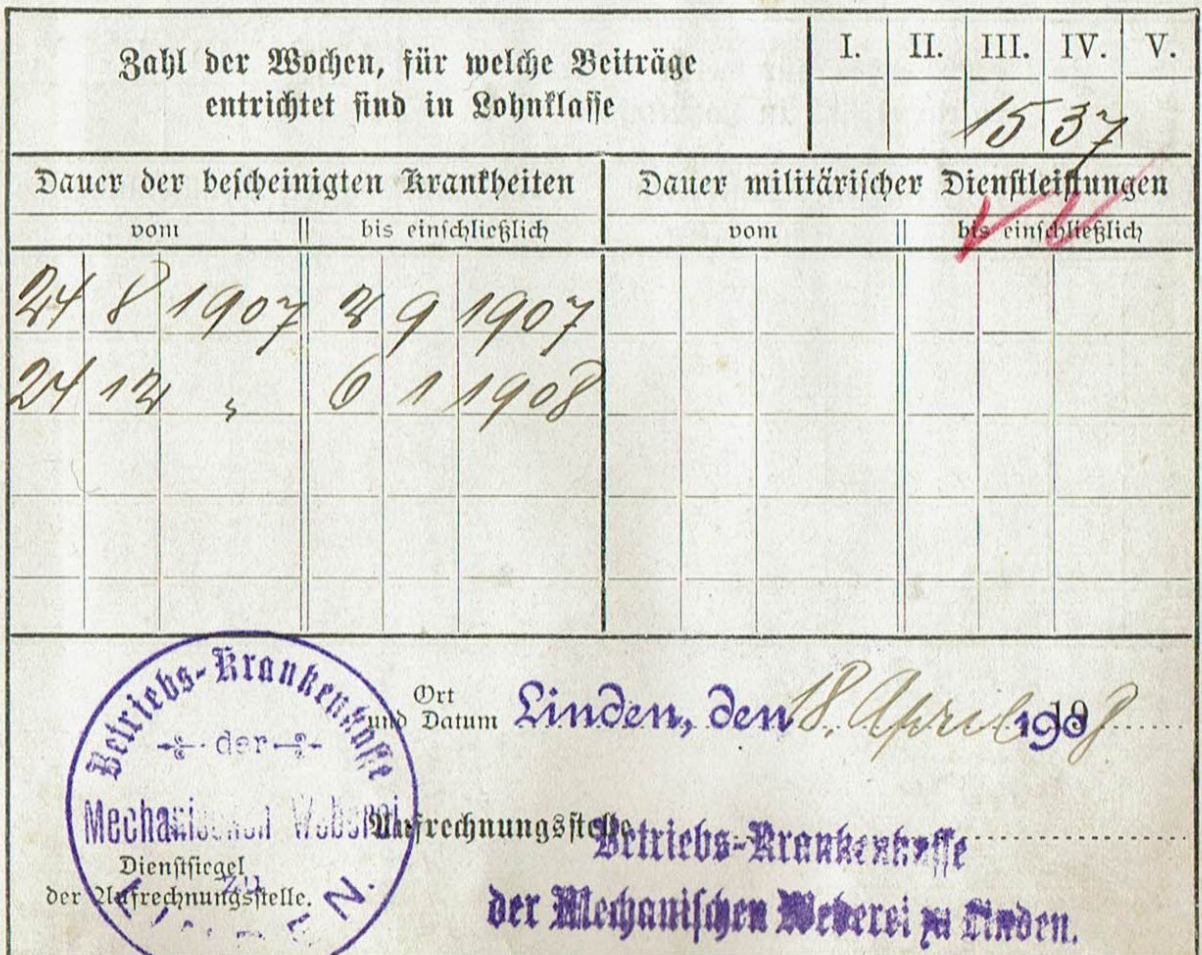 Zahl der Wochen, für welche Beiträge
entrichtet sind in Lohnklasse
I. II. III. IV. V.
15 37
Dauer der bescheinigten Krankheiten
Dauer militärischer Dienstleistungen
vom bis einschließlich
vom bis einschließlich
24 8 1907 2 9 1907
24 12 " 6 1 1908
Betriebs-Krankenkasse
der
Mechanischen Weberei
zu
LINDEN.
Ort
und Datum Linden, den 18. April 1908
Aufrechnungsstelle
Betriebs-Krankenkasse
der Mechanischen Weberei zu Linden.
Dienstsiegel
der Aufrechnungsstelle.